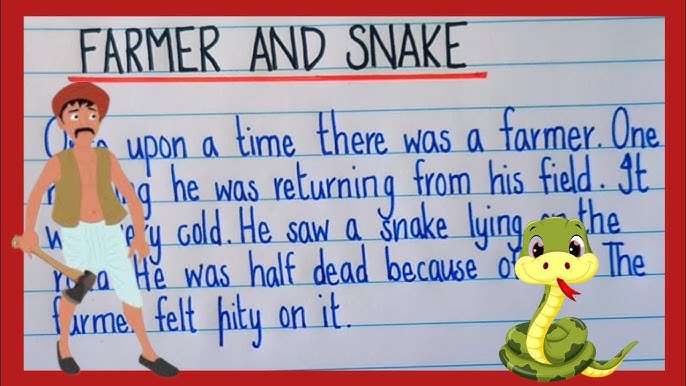 FARMER AND SNAKE
upon a time there was a farmer. One
he was returning from his field. It
cold. He saw a snake lying the
He was half dead because of The
farmer felt pity on it.